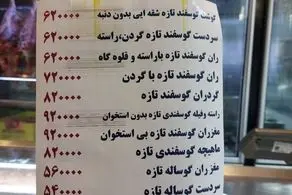 گوشت گوسفند تازه شقه ایی بدون دنبه ۶۲۰۰۰۰
سردست گوسفند تازه گردن،راسته ۶۲۰۰۰۰
ران گوسفند تازه باراسته و قلوه گاه ۶۲۰۰۰۰
ران گوسفند تازه با گردن ۷۲۰۰۰۰
گردران گوسفند تازه ۸۲۰۰۰۰
راسته وفیله گوسفندی تازه بدون استخوان ۹۲۰۰۰۰
مغزران گوسفند تازه بی استخوان ۹۲۰۰۰۰
ماهیچه گوسفندی تازه ۸۲۰۰۰۰
مغزران گوساله تازه ۵۶۰۰۰۰
سردست گوساله تازه ۵۴۰۰۰۰